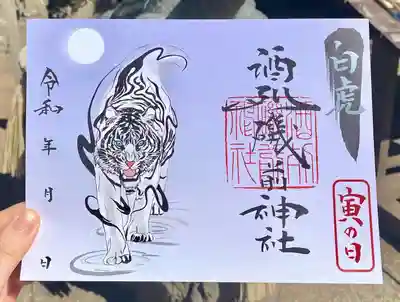 白虎
酒列磯前神社
寅の日
令和 年 月 日